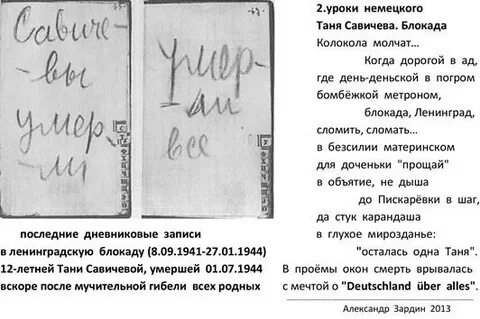 Савиче-
вы
умер-
ли
умер-
ли
все
последние дневниковые записи
в ленинградскую блокаду (8.09.1941-27.01.1944)
12-летней Тани Савичевой, умершей 01.07.1944
вскоре после мучительной гибели всех родных
2.уроки немецкого
Таня Савичева. Блокада
Колокола молчат...
Когда дорогой в ад,
где день-деньской в погром
бомбёжкой метроном,
блокада, Ленинград,
сломить, сломать...
в безсилии материнском
для доченьки "прощай"
в объятие, не дыша
до Пискарёвки в шаг,
да стук карандаша
в глухое мирозданье:
"осталась одна Таня".
В проёмы окон смерть врывалась
с мечтой о "Deutschland über alles".
Александр Зардин 2013